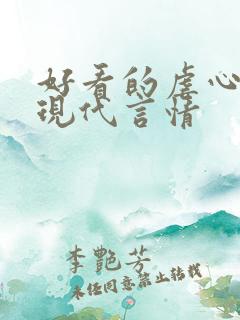 好看的虐心
現代言情
李艷芳
未经同意禁止转载